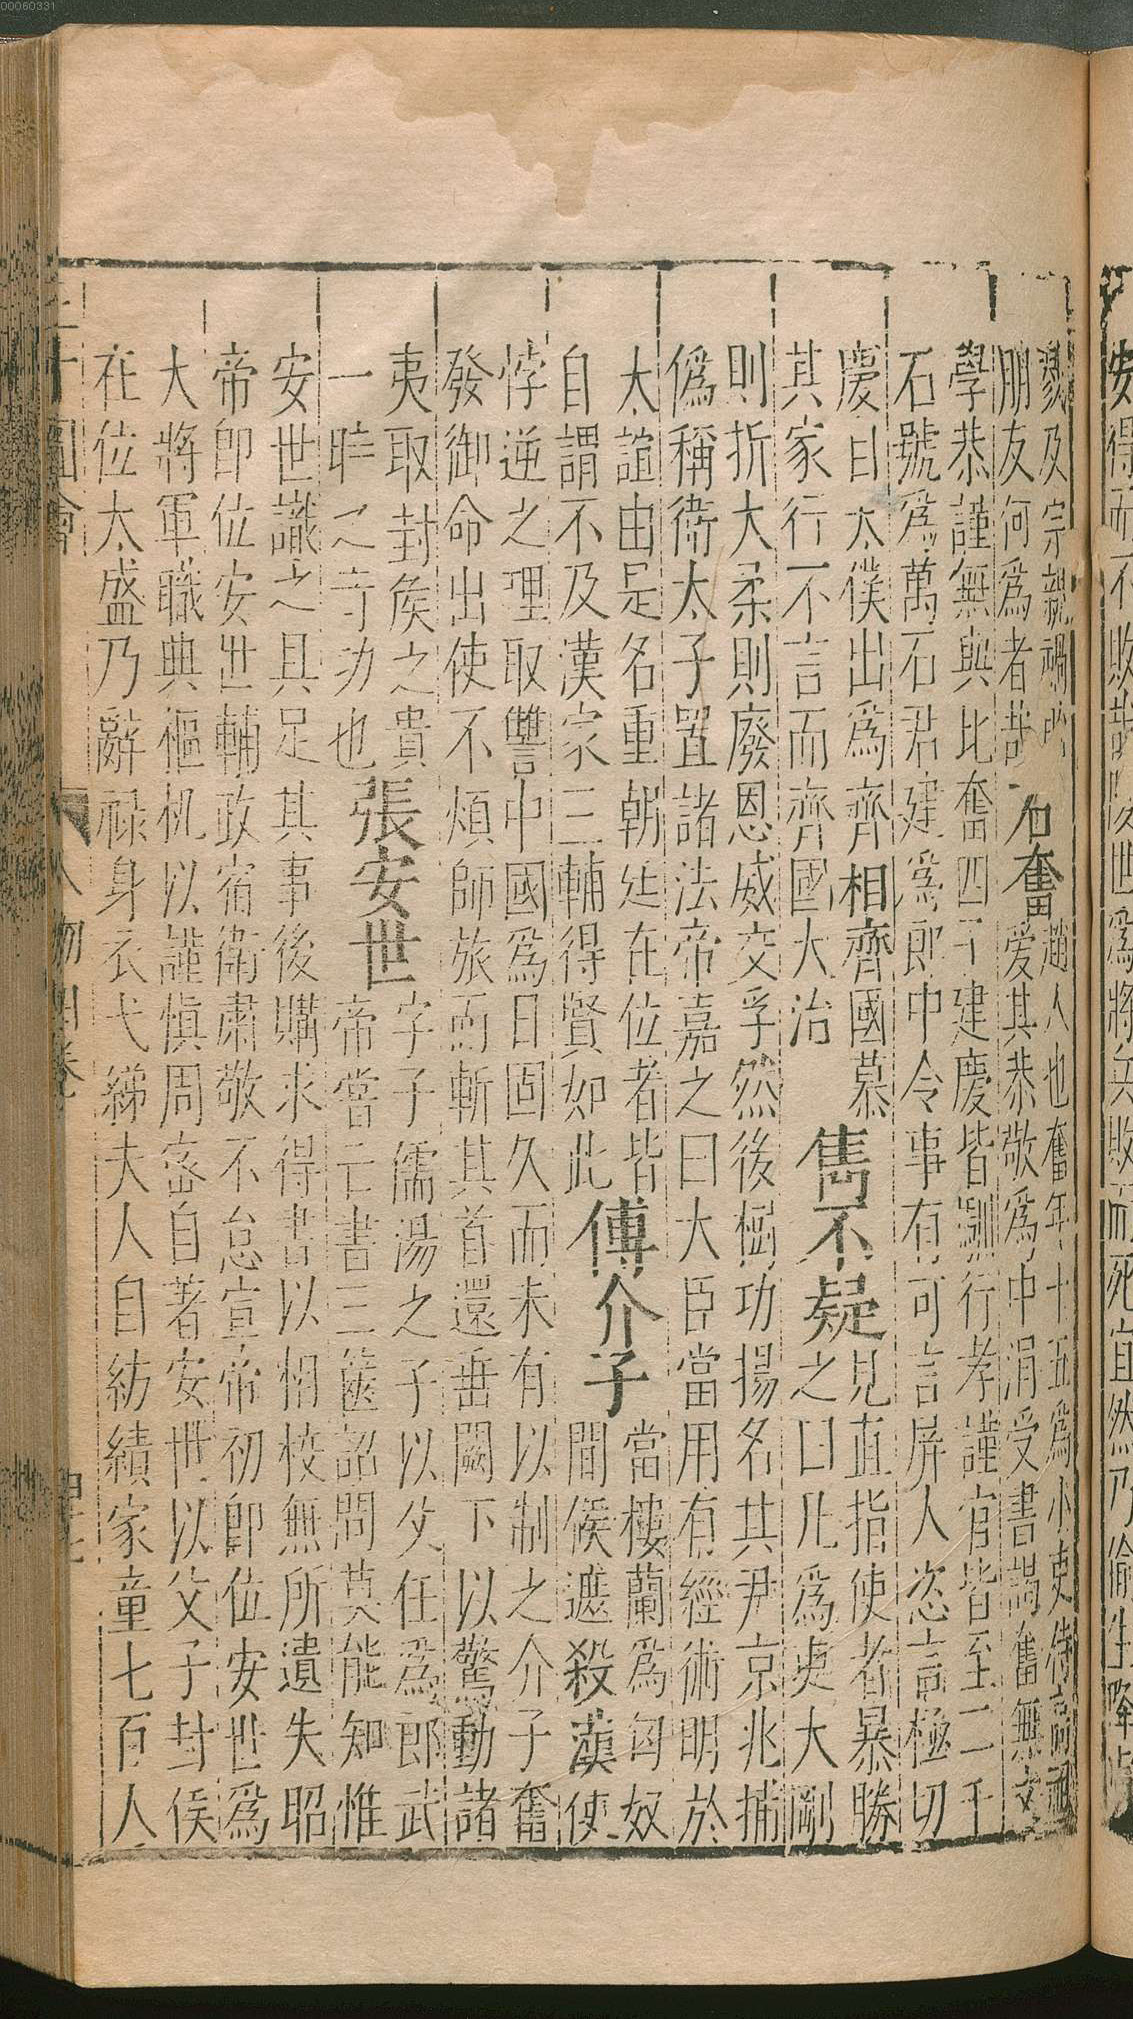 安得而不敗哉陵世為將兵敗而死宜然乃偷生降虜
戮及宗親禍
朋友何為者哉
石奮
趙人也奮年十五為小吏侍高祖
愛其恭敬為中涓受書謁奮無文
學恭謹無與比奮四子建慶皆馴行孝謹官皆至二千
石號為萬石君建為郎中令事有可言屏人恣言極切
慶自太僕出為齊相齊國慕
其家行不言而齊國大治
雋不疑
見直指使者暴勝
之曰凡為吏大剛
則折大柔則廢恩威交孚然後樹功揚名其尹京兆捕
偽稱衛太子置諸法帝嘉之曰大臣當用有經術明於
太誼由是名重朝廷在位者皆
自謂不及漢家三輔得賢如此
傅介子
當樓蘭為匈奴
間候遮殺漢使
悖逆之理取讐中國為日固久而未有以制之介子奮
發御命出使不煩師旅而斬其首還垂闕下以驚動諸
夷取封侯之貴
一時之奇功也
張安世
字子儒湯之子以父任為郎武
帝嘗亡書三篋詔問莫能知惟
安世識之具足其事後購求得書以相校無所遺失昭
帝即位安世輔政宿衛肅敬不怠宣帝初即位安世為
大將軍職典樞机以謹慎周密自著安世以父子封侯
在位太盛乃辭祿身衣弋綈夫人自紡績家童七百人
三才圖會 人物四卷
00060331